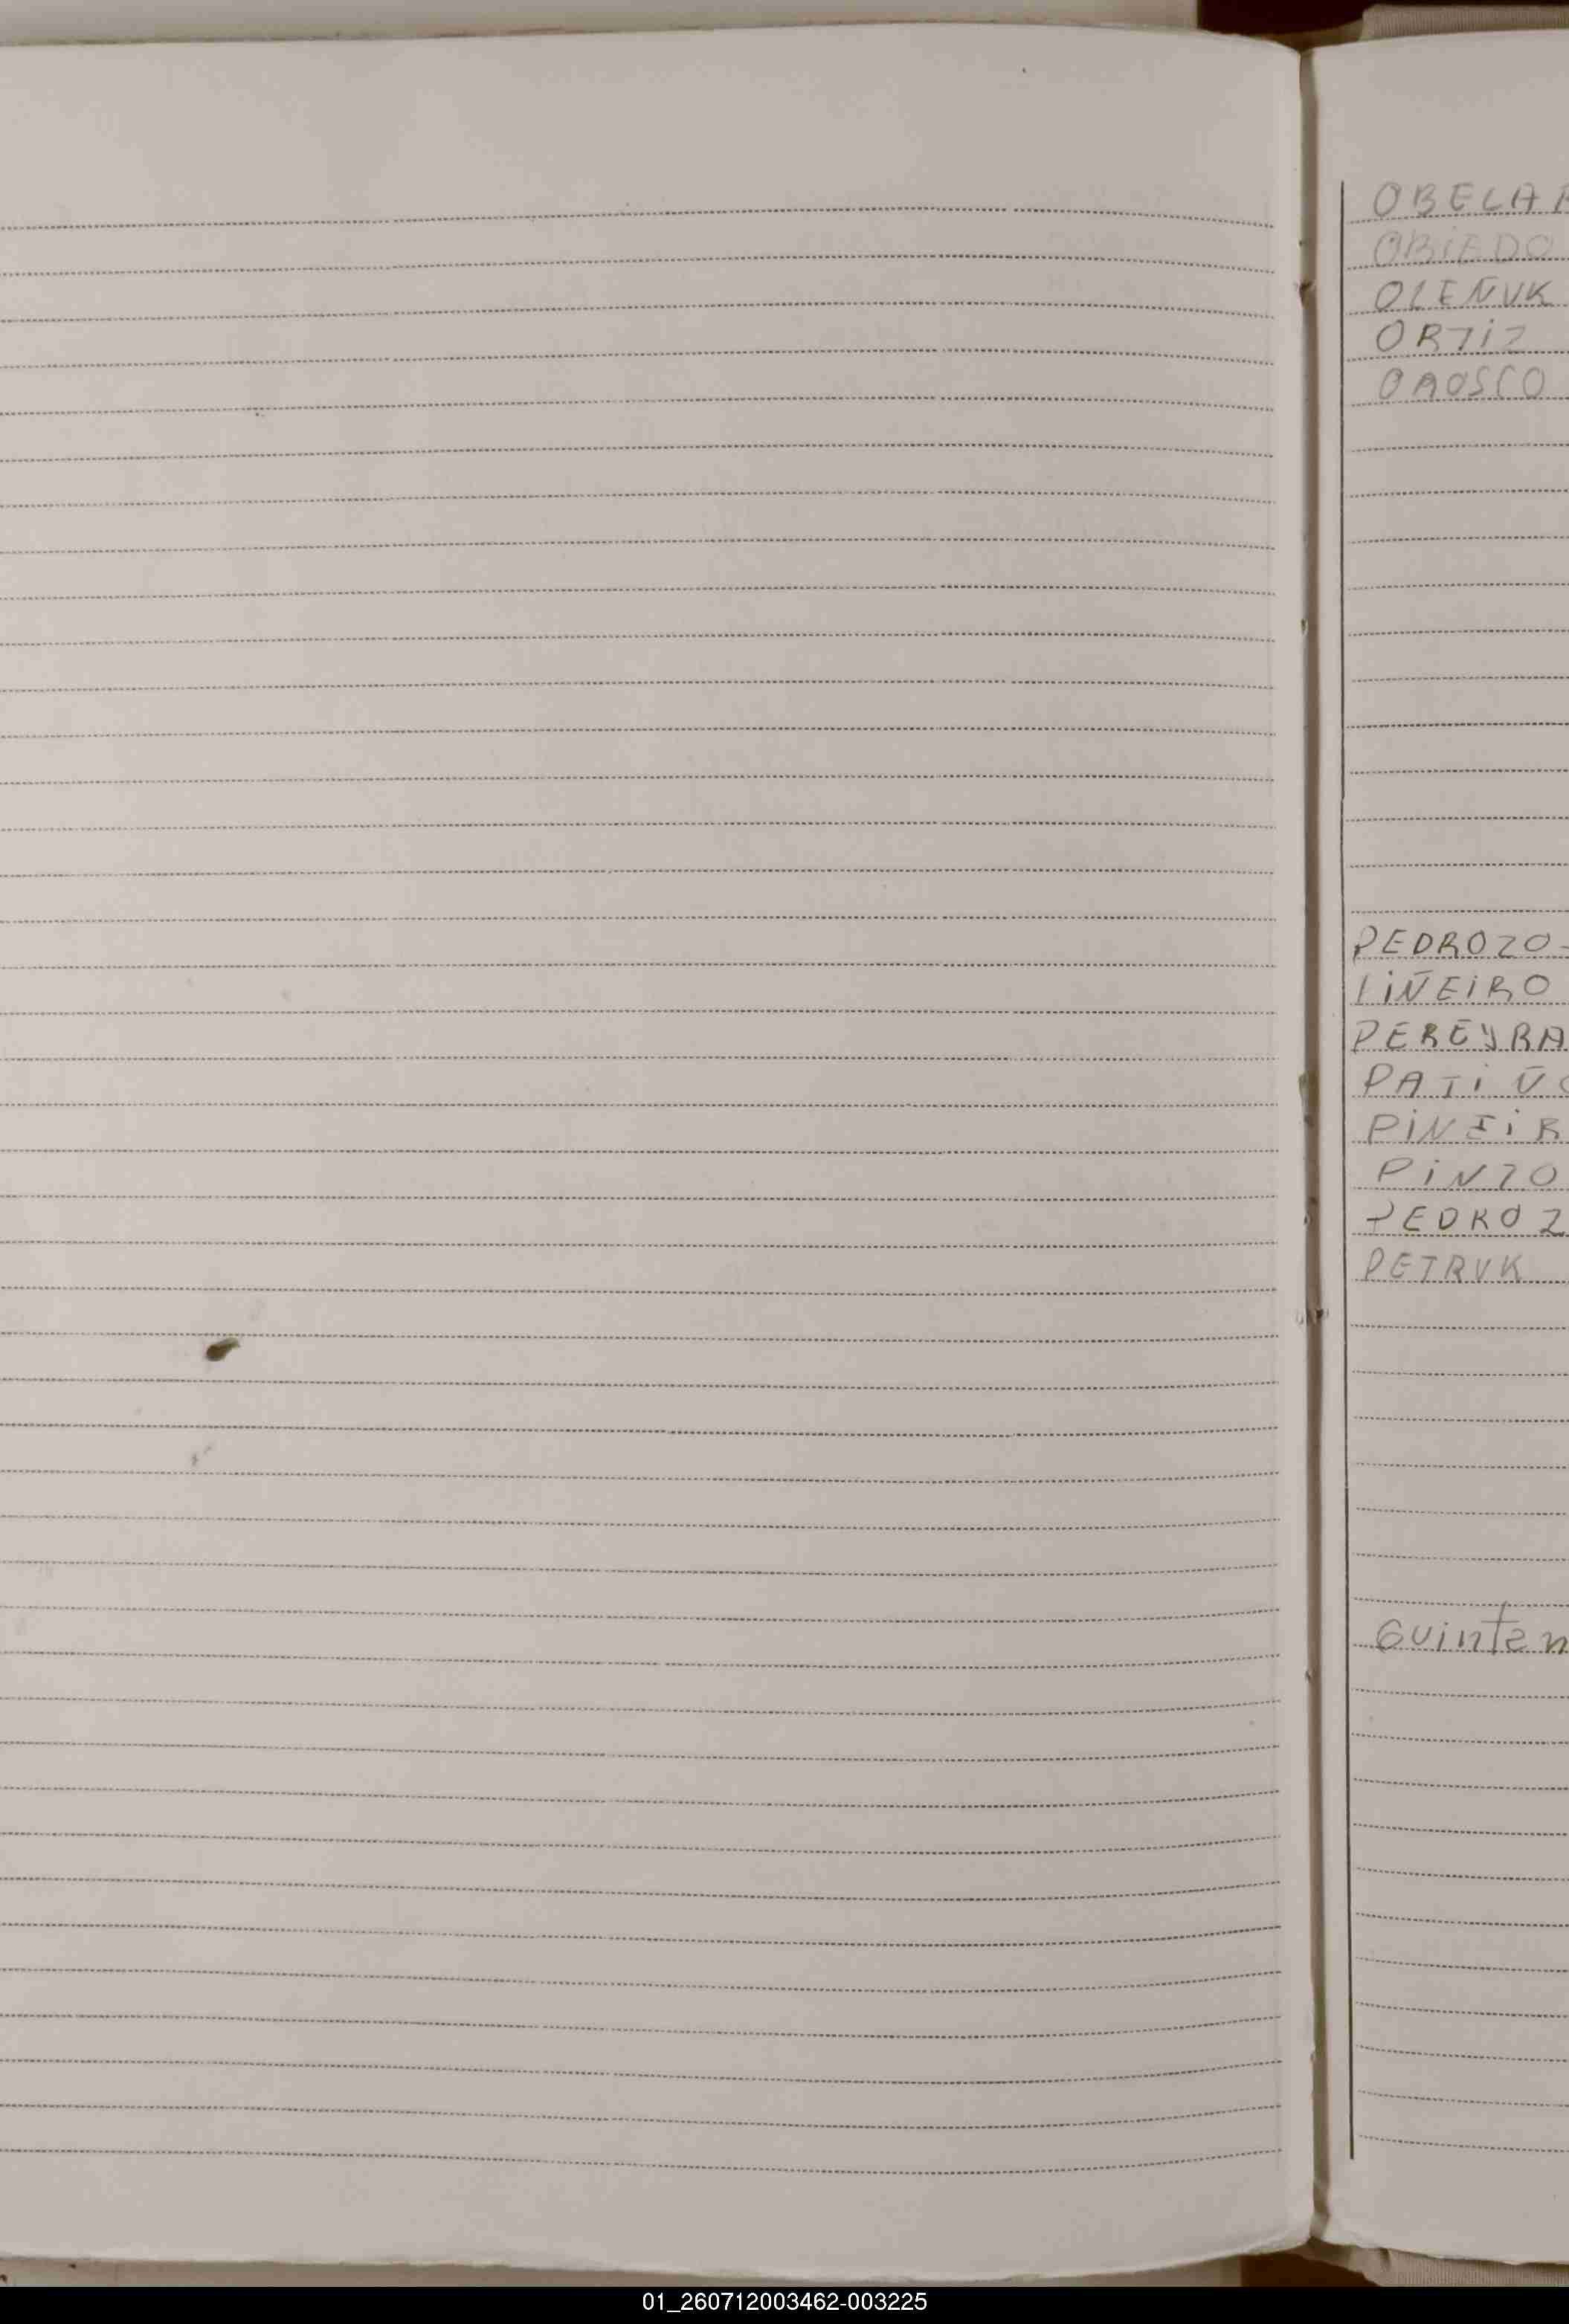 OBELAR
OBIEDO
OLEÑUK
ORTIZ
OROSCO
PEDROZO-
PIÑEIRO
PEREYRA
PATIÑO
PINEIR
PINTO
PEDROZ
PETRUK
Quintan
01_260712003462-003225